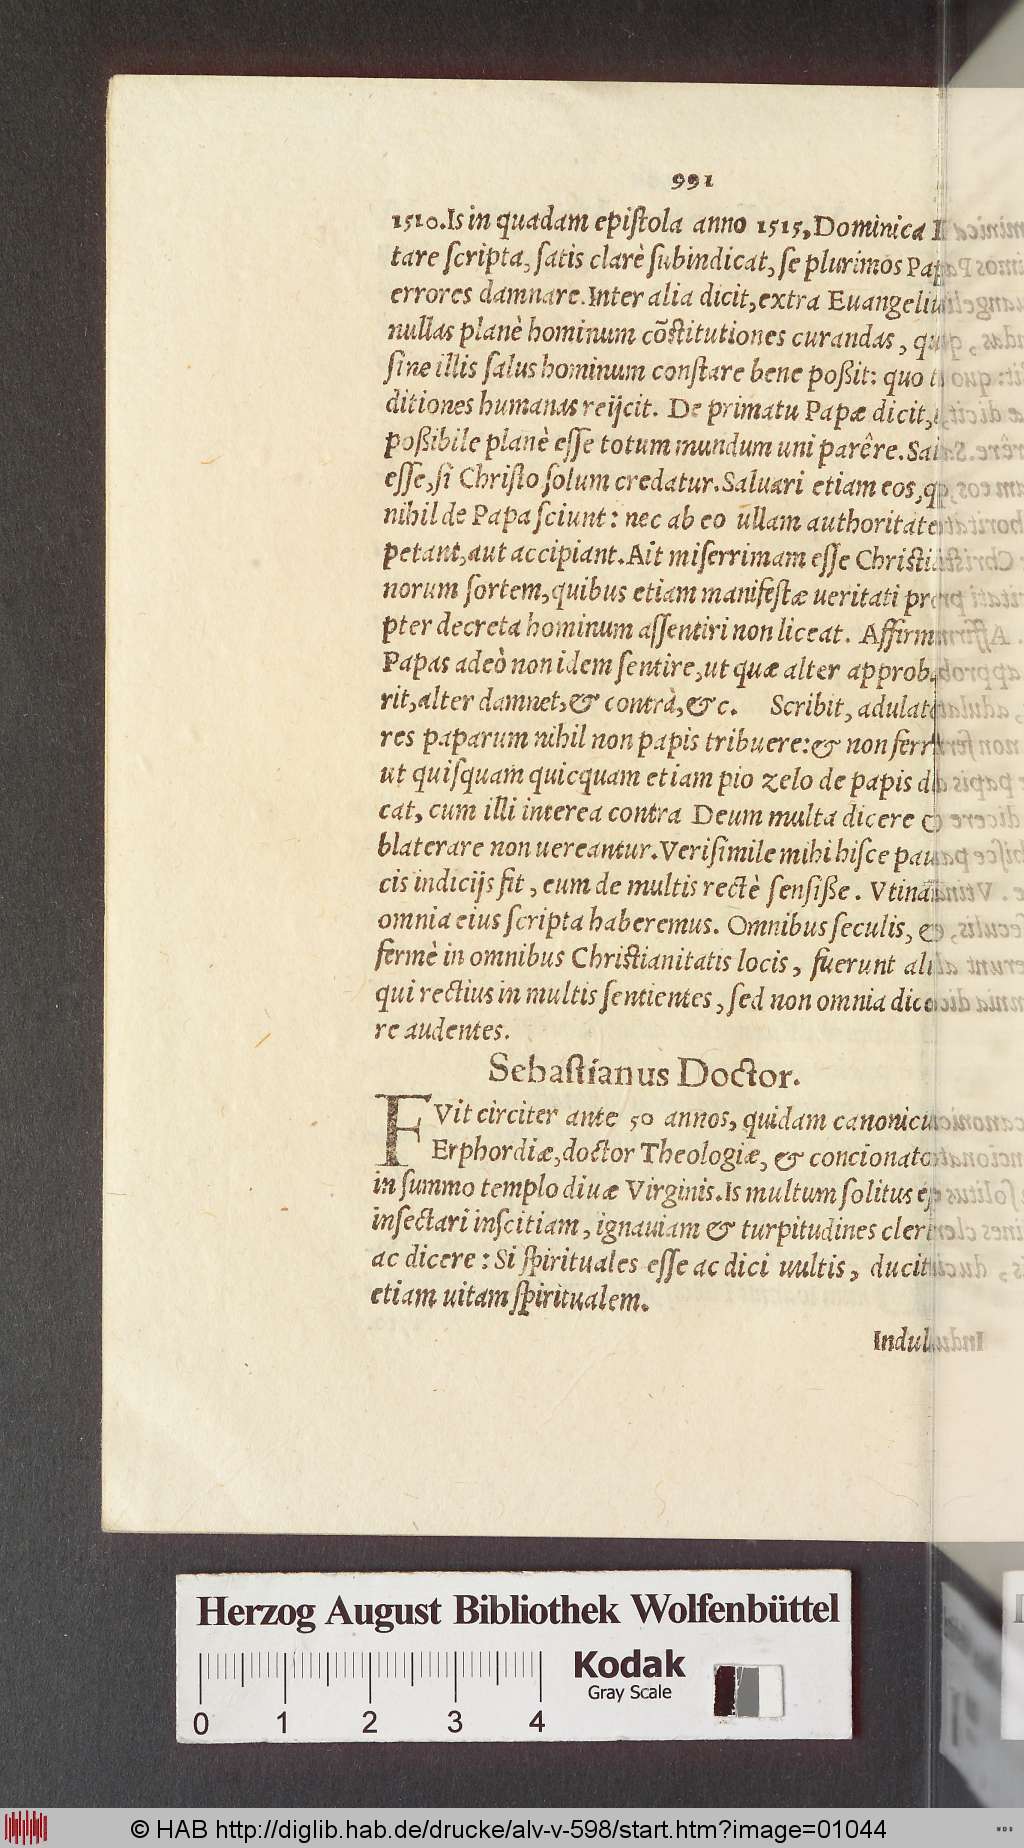 991
1510. Is in quadam epistola anno 1515, Dominica
tare scripta, satis clarè subindicat, se plurimos
errores damnare. Inter alia dicit, extra
nullas planè hominum cõstitutiones curandas,
sine illis salus hominum constare bene poßit: quo
ditiones humanas reijcit. De primatu Papæ dicit,
poßibile planè esse totum mundum uni parêre.
esse, si Christo solum credatur. Saluari etiam eos,
nihil de Papa sciunt: nec ab eo ullam
petant, aut accipiant. Ait miserrimam esse
norum sortem, quibus etiam manifestæ ueritati
pter decreta hominum assentiri non liceat.
Papas adeò non idem sentire, ut quæ alter
rit, alter damnet, & contrà, &c. Scribit,
res paparum nihil non papis tribuere: & non
ut quisquam quicquam etiam pio zelo de papis
cat, cum illi interea contra Deum multa dicere
blaterare non uereantur. Verisimile mihi hisce
cis indicijs fit, eum de multis rectè sensiße.
omnia eius scripta haberemus. Omnibus seculis,
fermè in omnibus Christianitatis locis, fuerunt
qui rectius in multis sentientes, sed non omnia
re audentes.
Sebastianus Doctor.
FVit circiter ante 50 annos, quidam
Erphordiæ, doctor Theologiæ, &
in summo templo diuæ Virginis. Is multum solitus
insectari inscitiam, ignauiam & turpitudines
ac dicere: Si spirituales esse ac dici uultis,
etiam uitam spiritualem.
Herzog August Bibliothek Wolfenbüttel
Kodak
Gray Scale
0 1 2 3 4
© HAB http://diglib.hab.de/drucke/alv-v-598/start.htm?image=01044